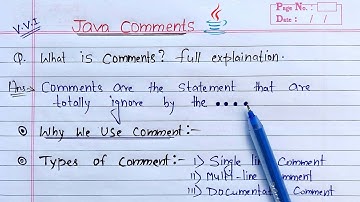 V.V.I
Java Comments
Page No. :
Date : / /
Q. What is comments? full explaination.
Ans:- Comments are the statement that are
totally ignore by the ....
Why We Use Comment:-
Types of Comment:-
i) Single line Comment
ii) Multi-line Comment
iii) Documentation Comment